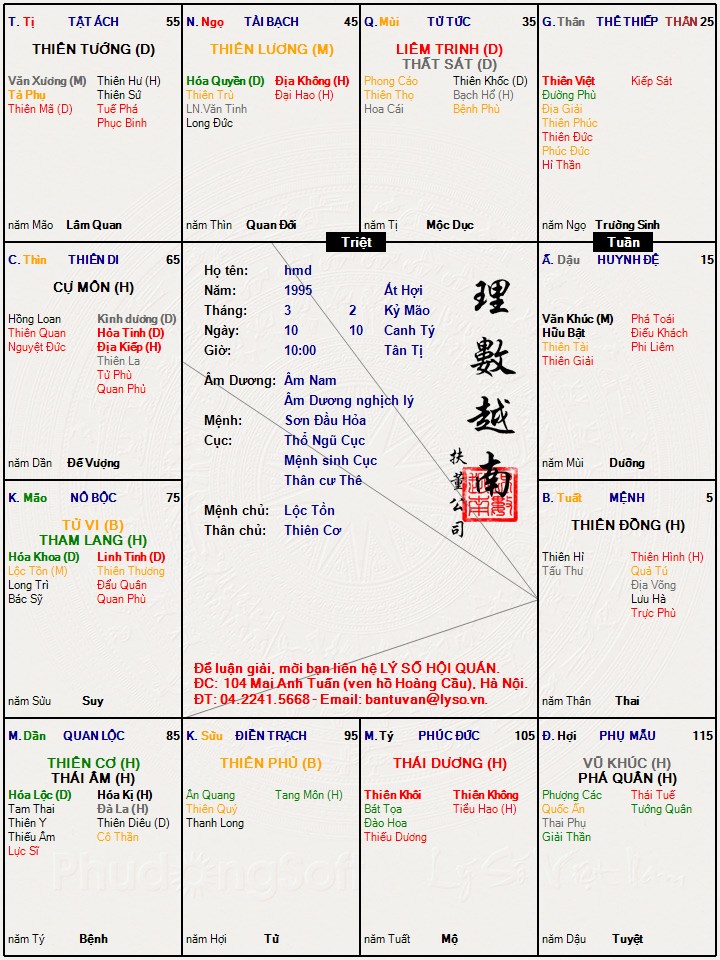 T. Tị TẬT ÁCH 55
THIÊN TƯỚNG (D)
Văn Xương (M) Thiên Hư (H)
Tả Phụ Thiên Sứ
Thiên Mã (D) Tuế Phá
Phục Binh
năm Mão Lâm Quan
N. Ngọ TÀI BẠCH 45
THIÊN LƯƠNG (M)
Hóa Quyền (D) Địa Không (H)
Thiên Trù Đại Hao (H)
LN.Văn Tinh
Long Đức
năm Thìn Quan Đới
Q. Mùi TỬ TỨC 35
LIÊM TRINH (D)
THẤT SÁT (D)
Phong Cáo Thiên Khốc (D)
Thiên Thọ Bạch Hổ (H)
Hoa Cái Bệnh Phù
năm Tị Mộc Dục
G. Thân THÊ THIẾP THÂN 25
Thiên Việt Kiếp Sát
Đường Phù
Địa Giải
Thiên Phúc
Thiên Đức
Phúc Đức
Hỉ Thần
năm Ngọ Trường Sinh
Triệt
Tuần
C. Thìn THIÊN DI 65
CỰ MÔN (H)
Hồng Loan Kình dương (D)
Thiên Quan Hỏa Tinh (D)
Nguyệt Đức Địa Kiếp (H)
Thiên La
Tử Phù
Quan Phủ
năm Dần Đế Vượng
Họ tên: hmd
Năm: 1995 Ất Hợi
Tháng: 3 2 Kỷ Mão
Ngày: 10 10 Canh Tý
Giờ: 10:00 Tân Tị
Âm Dương: Âm Nam
Âm Dương nghịch lý
Mệnh: Sơn Đầu Hỏa
Cục: Thổ Ngũ Cục
Mệnh sinh Cục
Thân cư Thê
Mệnh chủ: Lộc Tồn
Thân chủ: Thiên Cơ
理數越南
扶董公司
Để luận giải, mời bạn liên hệ LÝ SỐ HỘI QUÁN.
ĐC: 104 Mai Anh Tuấn (ven hồ Hoàng Cầu), Hà Nội.
ĐT: 04.2241.5668 - Email: bantuvan@lyso.vn.
Ấ. Dậu HUYNH ĐỆ 15
Văn Khúc (M) Phá Toái
Hữu Bật Điếu Khách
Thiên Tài Phi Liêm
Thiên Giải
năm Mùi Dưỡng
K. Mão NÔ BỘC 75
TỬ VI (B)
THAM LANG (H)
Hóa Khoa (D) Linh Tinh (D)
Lộc Tồn (M) Thiên Thương
Long Trì Đẩu Quân
Bác Sỹ Quan Phù
năm Sửu Suy
B. Tuất MỆNH 5
THIÊN ĐỒNG (H)
Thiên Hỉ Thiên Hình (H)
Tấu Thư Quả Tú
Địa Võng
Lưu Hà
Trực Phù
năm Thân Thai
M. Dần QUAN LỘC 85
THIÊN CƠ (H)
THÁI ÂM (H)
Hóa Lộc (D) Hóa Kị (H)
Tam Thai Đà La (H)
Thiên Y Thiên Diêu (D)
Thiếu Âm Cô Thần
Lực Sĩ
năm Tý Bệnh
K. Sửu ĐIỀN TRẠCH 95
THIÊN PHỦ (B)
Ân Quang Tang Môn (H)
Thiên Quý
Thanh Long
năm Hợi Tử
M. Tý PHÚC ĐỨC 105
THÁI DƯƠNG (H)
Thiên Khôi Thiên Không
Bát Tọa Tiểu Hao (H)
Đào Hoa
Thiếu Dương
năm Tuất Mộ
Đ. Hợi PHỤ MẪU 115
VŨ KHÚC (H)
PHÁ QUÂN (H)
Phượng Các Thái Tuế
Quốc Ấn Tướng Quân
Thai Phụ
Giải Thần
năm Dậu Tuyệt